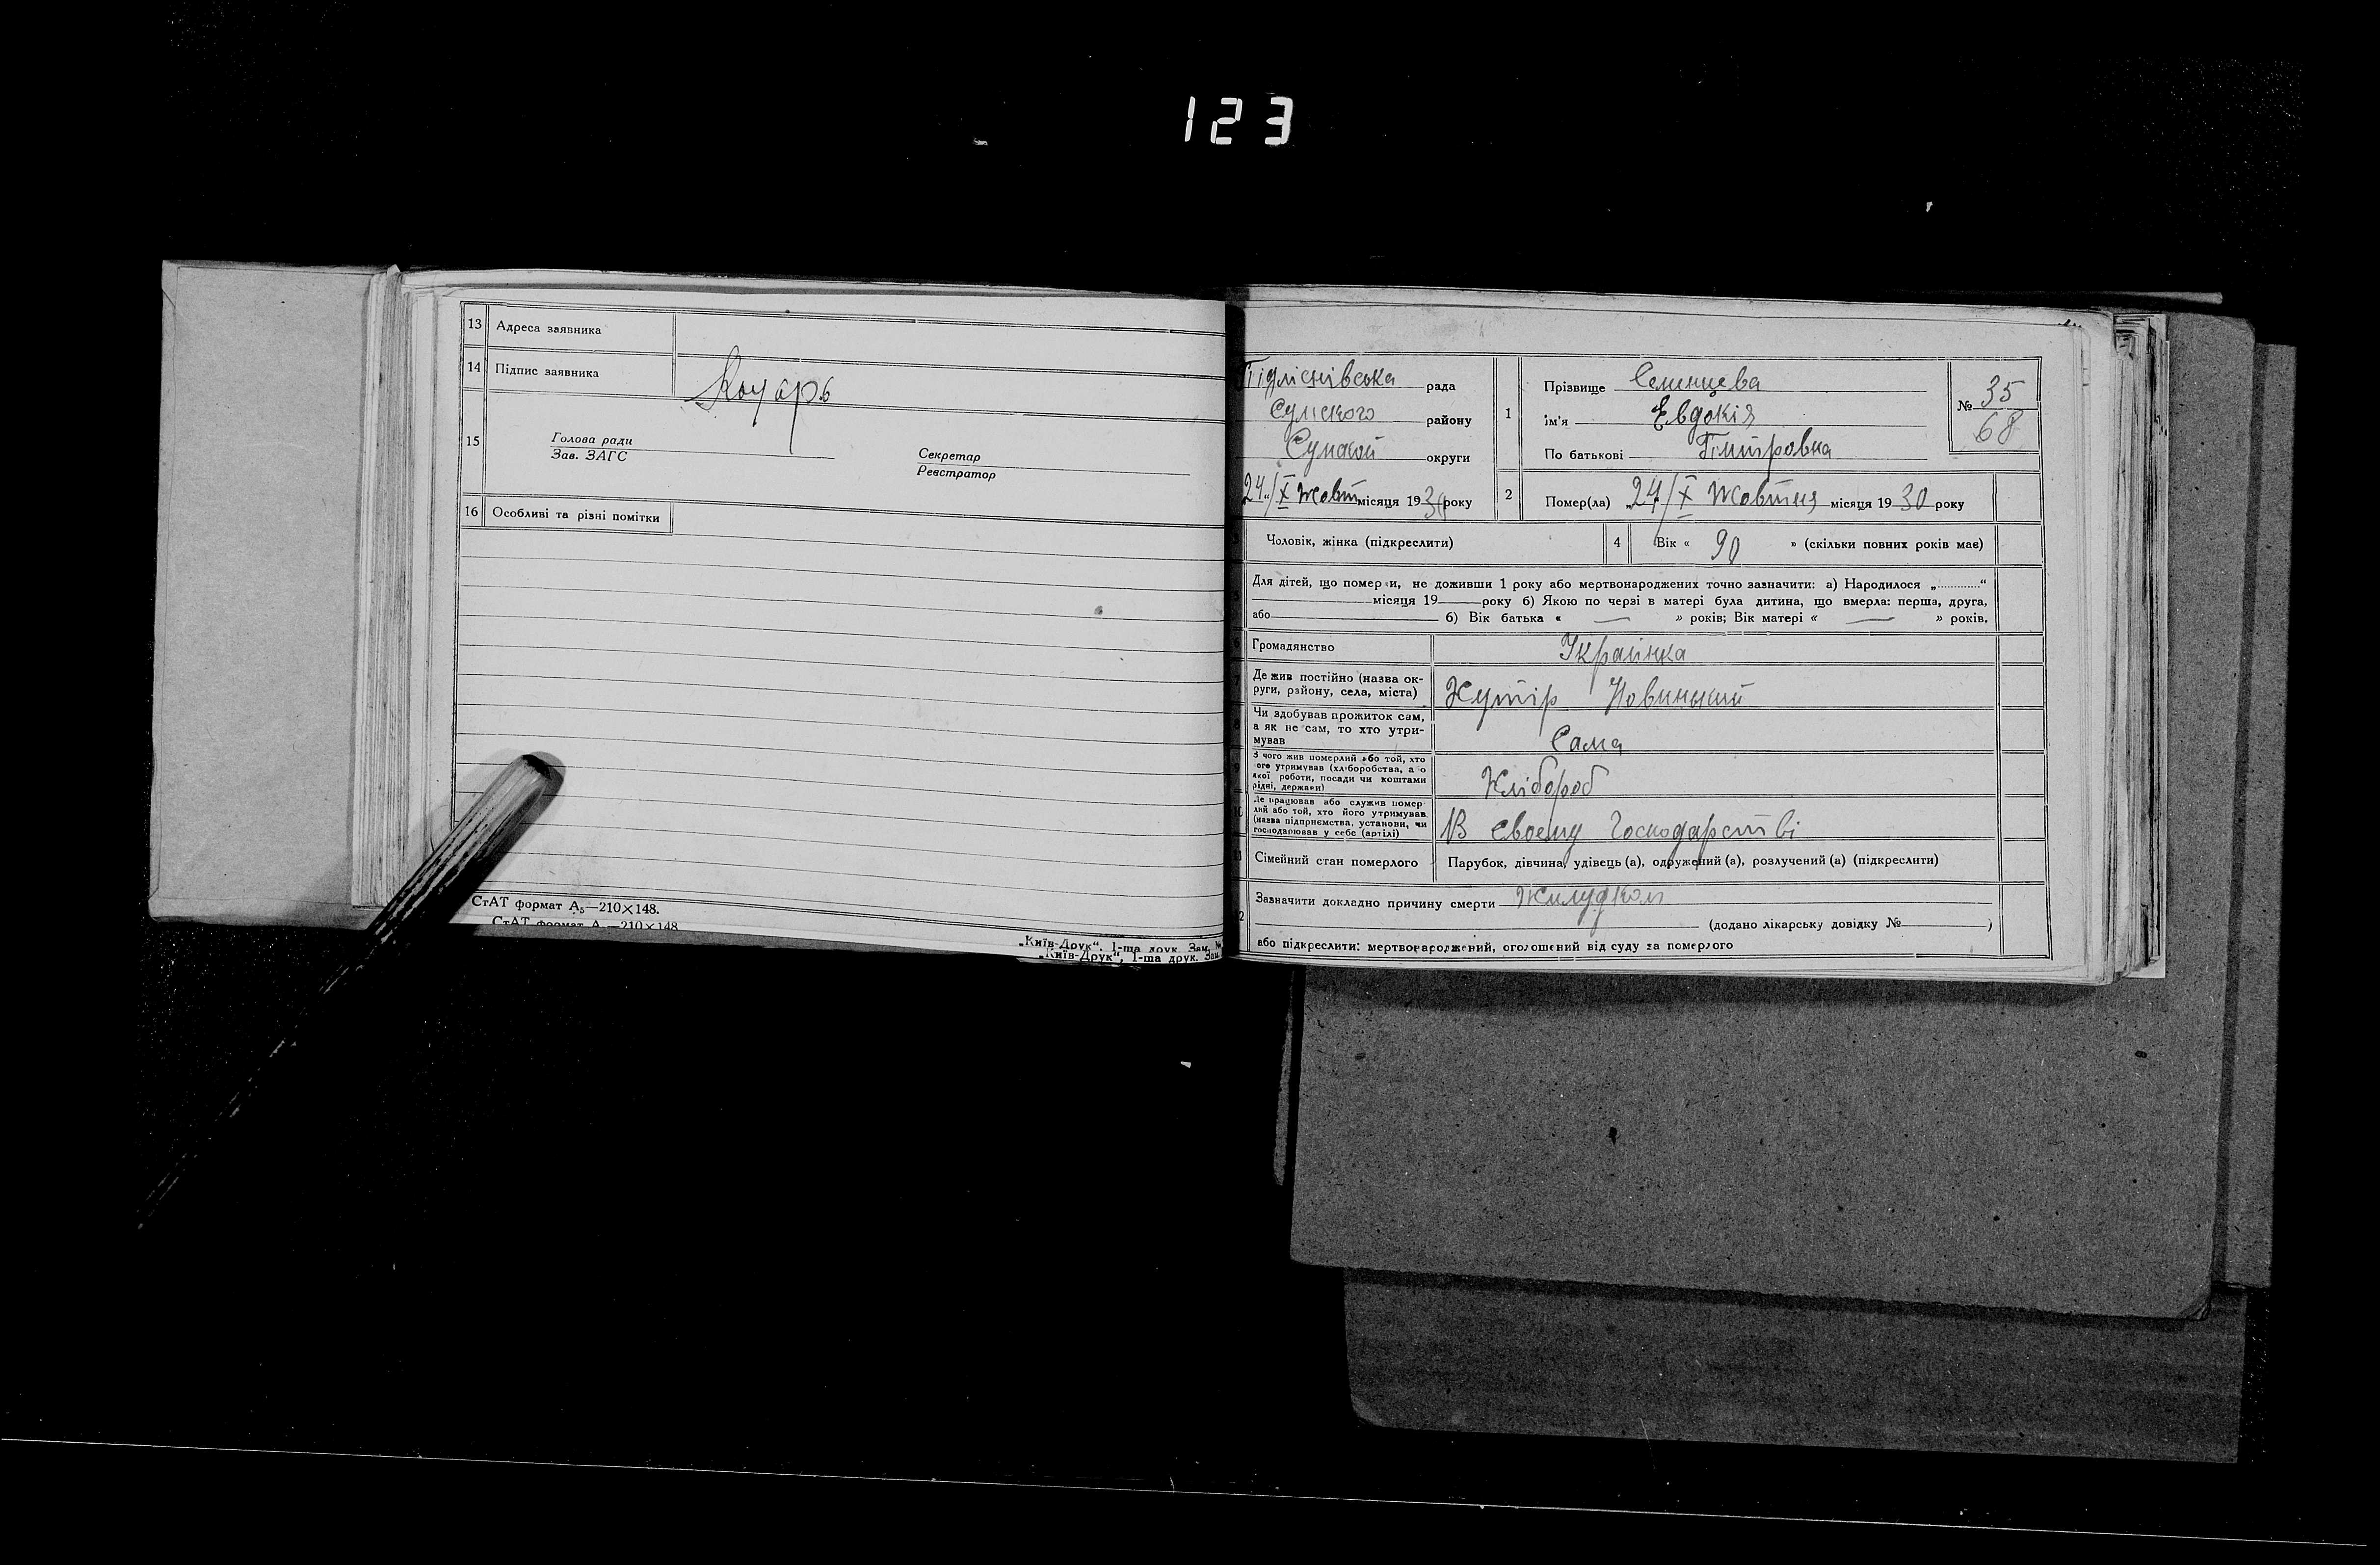 123
13 Адреса заявника
14 Підпис заявника
15 Голова ради
Зав. ЗАГС
Секретар
Реєстратор
16 Особливі та різні помітки
СтАТ формат А5—210×148.
СтАТ формат А5—210×148
„Київ-Друк“. 1-ша друк. Зам. №
„Київ-Друк“, 1-ша друк. Зам.
Підліснівська рада
Сумского району
Сумской округи
24/X Жовт місяця 1930 року
1 Прізвище Семенцева
ім'я Евдокія
По батькові
№ 35
68
2 Помер(ла) „24/X Жовтня місяця 19 30 року
Чоловік, жінка (підкреслити)
4 Вік « 90 » (скільки повних років має)
Для дітей, що померли, не доживши 1 року або мертвонароджених точно зазначити: а) Народилося „............“
місяця 19 року б) Якою по черзі в матері була дитина, що вмерла: перша, друга,
або б) Вік батька « — » років; Вік матері « — » років.
6 Громадянство Українка
7 Де жив постійно (назва ок-
руги, району, села, міста) Хутір
8 Чи здобував прожиток сам,
а як не сам, то хто утри-
мував Сама
9 З чого жив померлий або той, хто
ого утримував (хліборобства, а о
якої роботи, посади чи коштами
рідні, держави) Хлібороб
10 Де працював або служив помер
лий або той, хто його утримував.
(назва підприємства, установи, чи
господарював у себе (артілі) В своєму господарстві
11 Сімейний стан померлого Парубок, дівчина, удівець (а), одружений (а), розлучений (а) (підкреслити)
Зазначити докладно причину смерти Жилудком
(додано лікарську довідку № )
або підкреслити: мертвонароджений, оголошений від суду за померлого